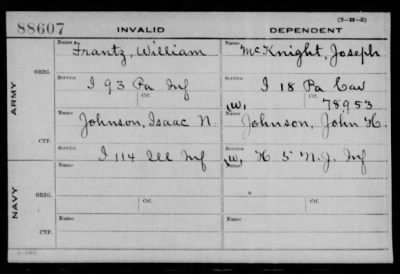 (3-M-3)
88607 INVALID DEPENDENT
Name Name
Frantz, William McKnight, Joseph
ORIG. Service Service
I 93 Pa Inf I 18 Pa Cav
ARMY Ctf.
(W) 78953
Name Name
Johnson, Isaac N. Johnson, John H.
CTF. Service Service
I 114 Ill Inf (W) H 5 N.J. Inf
Name Name
ORIG.
NAVY Ctf. Ctf.
Name Name
CTF.